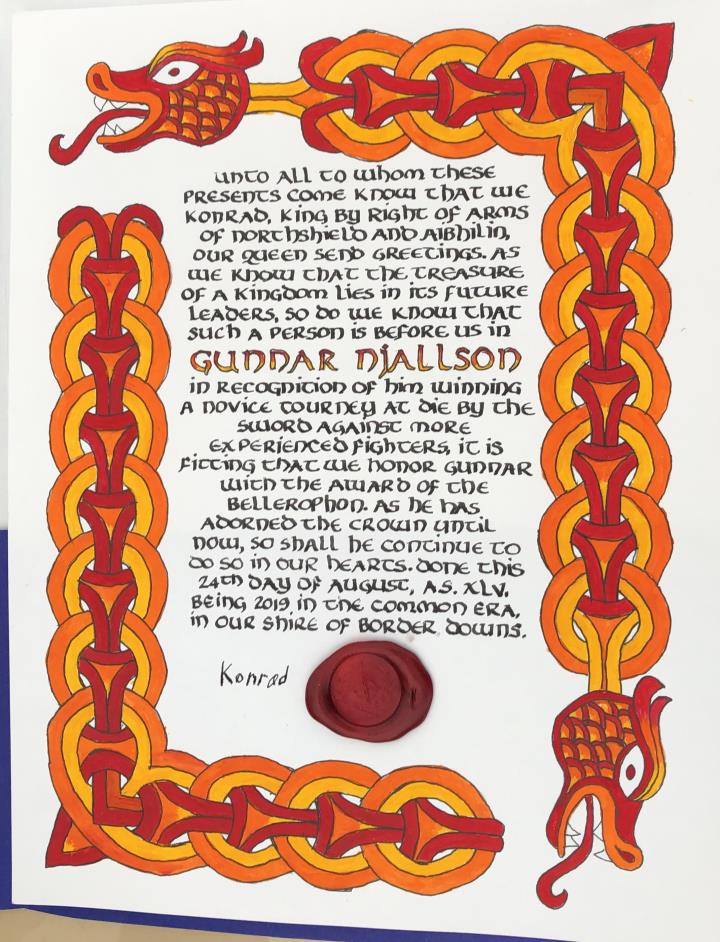 unto all to whom these
presents come know that we
Konrad, King by Right of Arms
of Northshield and Aibhilin,
our Queen send greetings. As
we know that the treasure
of a kingdom lies in its future
leaders, so do we know that
such a person is before us in
Gunnar Njallson
in recognition of him winning
a novice tourney at Die by the
Sword against more
experienced fighters, it is
fitting that we honor Gunnar
with the Award of the
Bellerophon. As he has
adorned the crown until
now, so shall he continue to
do so in our hearts. Done this
24th day of August, A.S. XLV,
being 2019 in the common era,
in our Shire of Border Downs.
Konrad